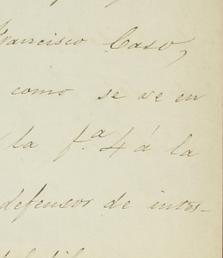 Francisco Caso,
como se ve en
la f.ª 4 á la
defensor de inter-